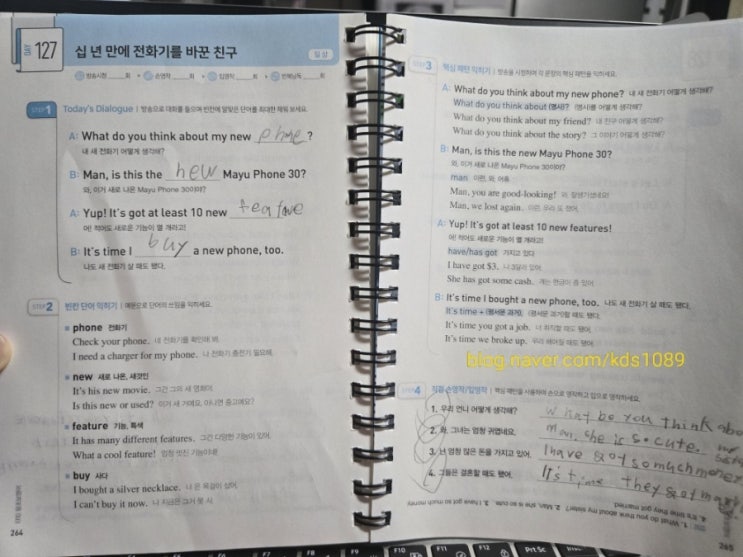 DAY 127
십 년 만에 전화기를 바꾼 친구
일상
방송시청 ___회 손영작 ___회 입영작 ___회 반복낭독 ___회
STEP 1 Today's Dialogue | 방송으로 대화를 들으며 빈칸에 알맞은 단어를 최대한 채워 보세요.
A: What do you think about my new phone?
내 새 전화기 어떻게 생각해?
B: Man, is this the new Mayu Phone 30?
와, 이거 새로 나온 Mayu Phone 30이야?
A: Yup! It's got at least 10 new feature
어! 적어도 새로운 기능이 열 개라고!
B: It's time I buy a new phone, too.
나도 새 전화기 살 때도 됐다.
STEP 2 빈칸 단어 익히기 | 예문으로 단어의 쓰임을 익히세요.
phone 전화기
Check your phone. 네 전화기를 확인해 봐.
I need a charger for my phone. 나 전화기 충전기 필요해.
new 새로 나온, 새것인
It's his new movie. 그건 그의 새 영화야.
Is this new or used? 이거 새 거예요, 아니면 중고예요?
feature 기능, 특색
It has many different features. 그건 다양한 기능이 있어.
What a cool feature! 엄청 멋진 기능이네!
buy 사다
I bought a silver necklace. 나 은 목걸이 샀어.
I can't buy it now. 나 지금은 그거 못 사.
264
STEP 3 핵심 패턴 익히기 | 방송을 시청하며 각 문장의 핵심 패턴을 익히세요.
A: What do you think about my new phone? 내 새 전화기 어떻게 생각해?
What do you think about (명사)? (명사)를 어떻게 생각해?
What do you think about my friend? 내 친구 어떻게 생각해?
What do you think about the story? 그 이야기 어떻게 생각해?
B: Man, is this the new Mayu Phone 30?
와, 이거 새로 나온 Mayu Phone 30이야?
man 이런, 와, 어휴
Man, you are good-looking! 와, 잘생기셨네요!
Man, we lost again. 이런, 우리 또 졌어.
A: Yup! It's got at least 10 new features!
어! 적어도 새로운 기능이 열 개라고!
have/has got 가지고 있다
I have got $3. 나 3달러 있어.
She has got some cash. 걔는 현금이 좀 있어.
B: It's time I bought a new phone, too. 나도 새 전화기 살 때도 됐다.
It's time + (평서문 과거). (평서문 과거)할 때도 됐다.
It's time you got a job. 너 취직할 때도 됐어.
It's time we broke up. 우리 헤어질 때도 됐어.
blog.naver.com/kds1089
STEP 4 직접 손영작/입영작 | 핵심 패턴을 사용하여 손으로 영작하고 입으로 영작하세요.
1. 우리 언니 어떻게 생각해? What be you think abo
2. 와, 그녀는 엄청 귀엽네요. man. she is so cute.
3. 넌 엄청 많은 돈을 가지고 있어. I have got so much money
4. 그들은 결혼할 때도 됐어. It's time they got mar
1. What do you think about my sister? 2. Man, she is so cute. 3. I have got so much money.
4. It's time they got married.
265